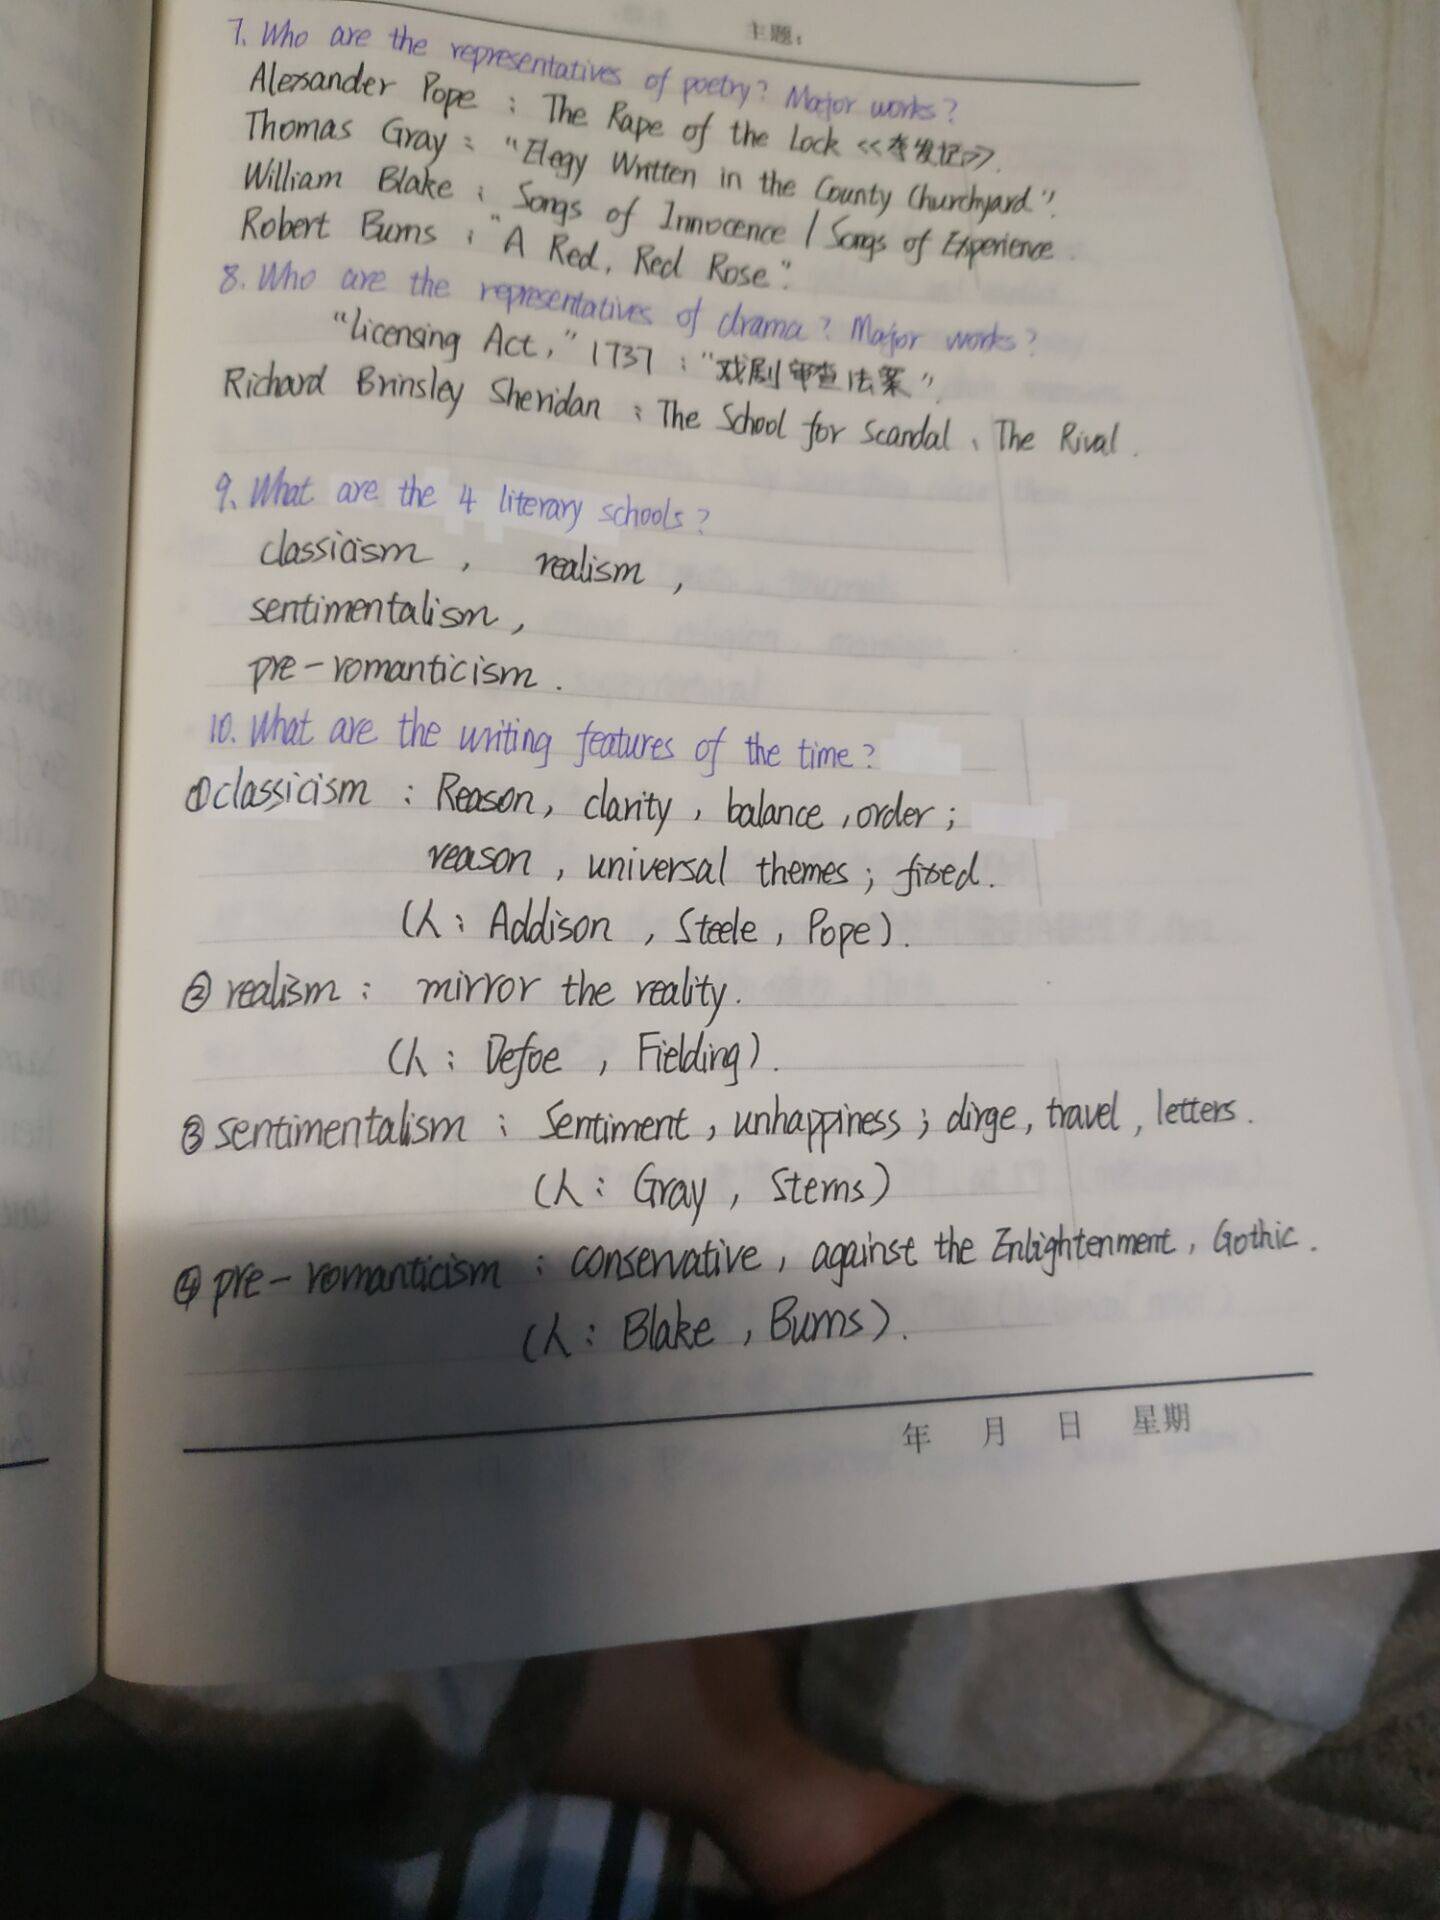 主题:
7. Who are the representatives of poetry? Major works?
Alexander Pope : The Rape of the Lock <<夺发记>>.
Thomas Gray : "Elegy Written in the County Churchyard".
William Blake : Songs of Innocence / Songs of Experience.
Robert Burns : "A Red, Red Rose".
8. Who are the representatives of drama? Major works?
"licensing Act," 1737 : "戏剧审查法案".
Richard Brinsley Sheridan : The School for Scandal、The Rival.
9. What are the 4 literary schools?
classicism, realism,
sentimentalism,
pre-romanticism.
10. What are the writing features of the time?
①classicism : Reason, clarity, balance, order;
reason, universal themes; fixed.
(人: Addison, Steele, Pope).
② realism : mirror the reality.
(人: Defoe, Fielding).
③ sentimentalism : Sentiment, unhappiness; dirge, travel, letters.
(人: Gray, Sterns)
④ pre-romanticism : conservative, against the Enlightenment, Gothic.
(人: Blake, Burns).
年 月 日 星期